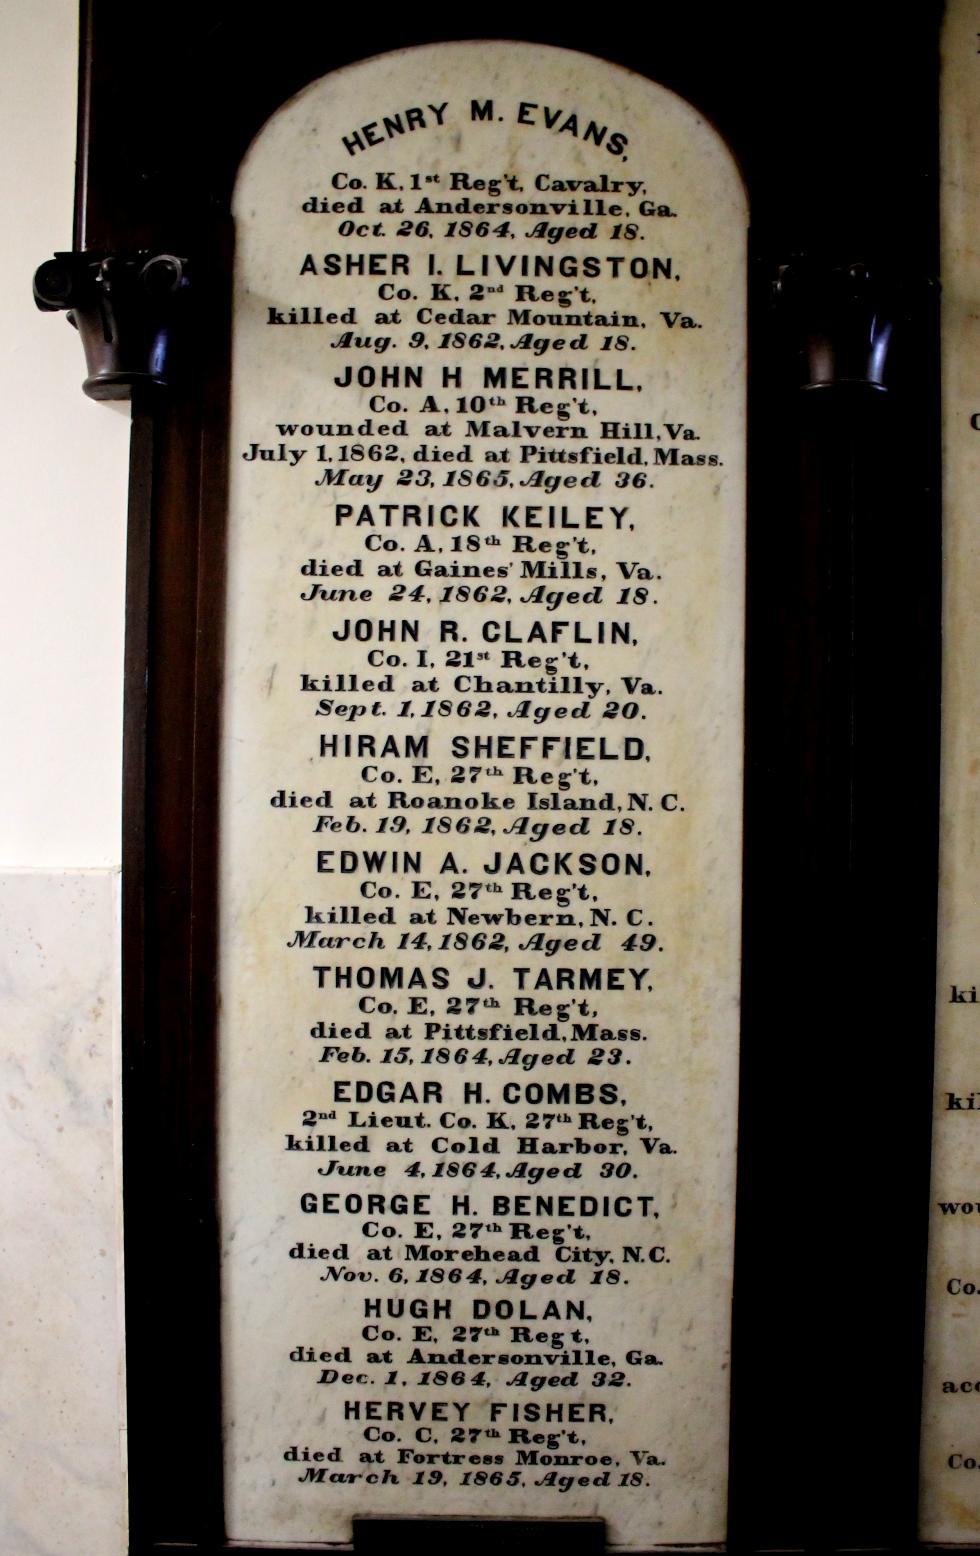 HENRY M. EVANS,
Co. K, 1st Reg't, Cavalry,
died at Andersonville, Ga.
Oct. 26, 1864, Aged 18.
ASHER I. LIVINGSTON,
Co. K, 2nd Reg't,
killed at Cedar Mountain, Va.
Aug. 9, 1862, Aged 18.
JOHN H MERRILL,
Co. A, 10th Reg't,
wounded at Malvern Hill, Va.
July 1, 1862, died at Pittsfield, Mass.
May 23, 1865, Aged 36.
PATRICK KEILEY,
Co. A, 18th Reg't,
died at Gaines' Mills, Va.
June 24, 1862, Aged 18.
JOHN R. CLAFLIN,
Co. I, 21st Reg't,
killed at Chantilly, Va.
Sept. 1, 1862, Aged 20.
HIRAM SHEFFIELD,
Co. E, 27th Reg't,
died at Roanoke Island, N. C.
Feb. 19, 1862, Aged 18.
EDWIN A. JACKSON,
Co. E, 27th Reg't,
killed at Newbern, N. C.
March 14, 1862, Aged 49.
THOMAS J. TARMEY,
Co. E, 27th Reg't,
died at Pittsfield, Mass.
Feb. 15, 1864, Aged 23.
EDGAR H. COMBS,
2nd Lieut. Co. K, 27th Reg't,
killed at Cold Harbor, Va.
June 4, 1864, Aged 30.
GEORGE H. BENEDICT,
Co. E, 27th Reg't,
died at Morehead City, N.C.
Nov. 6, 1864, Aged 18.
HUGH DOLAN,
Co. E, 27th Reg t,
died at Andersonville, Ga.
Dec. 1, 1864, Aged 32.
HERVEY FISHER,
Co. C, 27th Reg't,
died at Fortress Monroe, Va.
March 19, 1865, Aged 18.
Co.
Co.